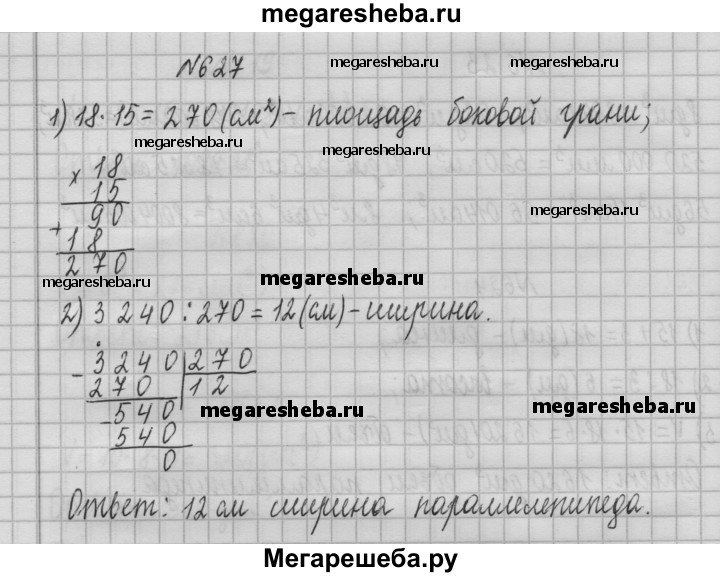 megaresheba.ru
№627
megaresheba.ru megaresheba.ru
1) 18·15=270(см²)- площадь боковой грани;
megaresheba.ru megaresheba.ru
× 18
15
90
megaresheba.ru
+ 18
270
megaresheba.ru megaresheba.ru megaresheba.ru
2) 3 240 : 270 = 12 (см) - ширина.
- 3240 270
270 12
- 540
megaresheba.ru megaresheba.ru
540
0
Ответ: 12 см ширина параллелепипеда.
Мегарешеба.ру